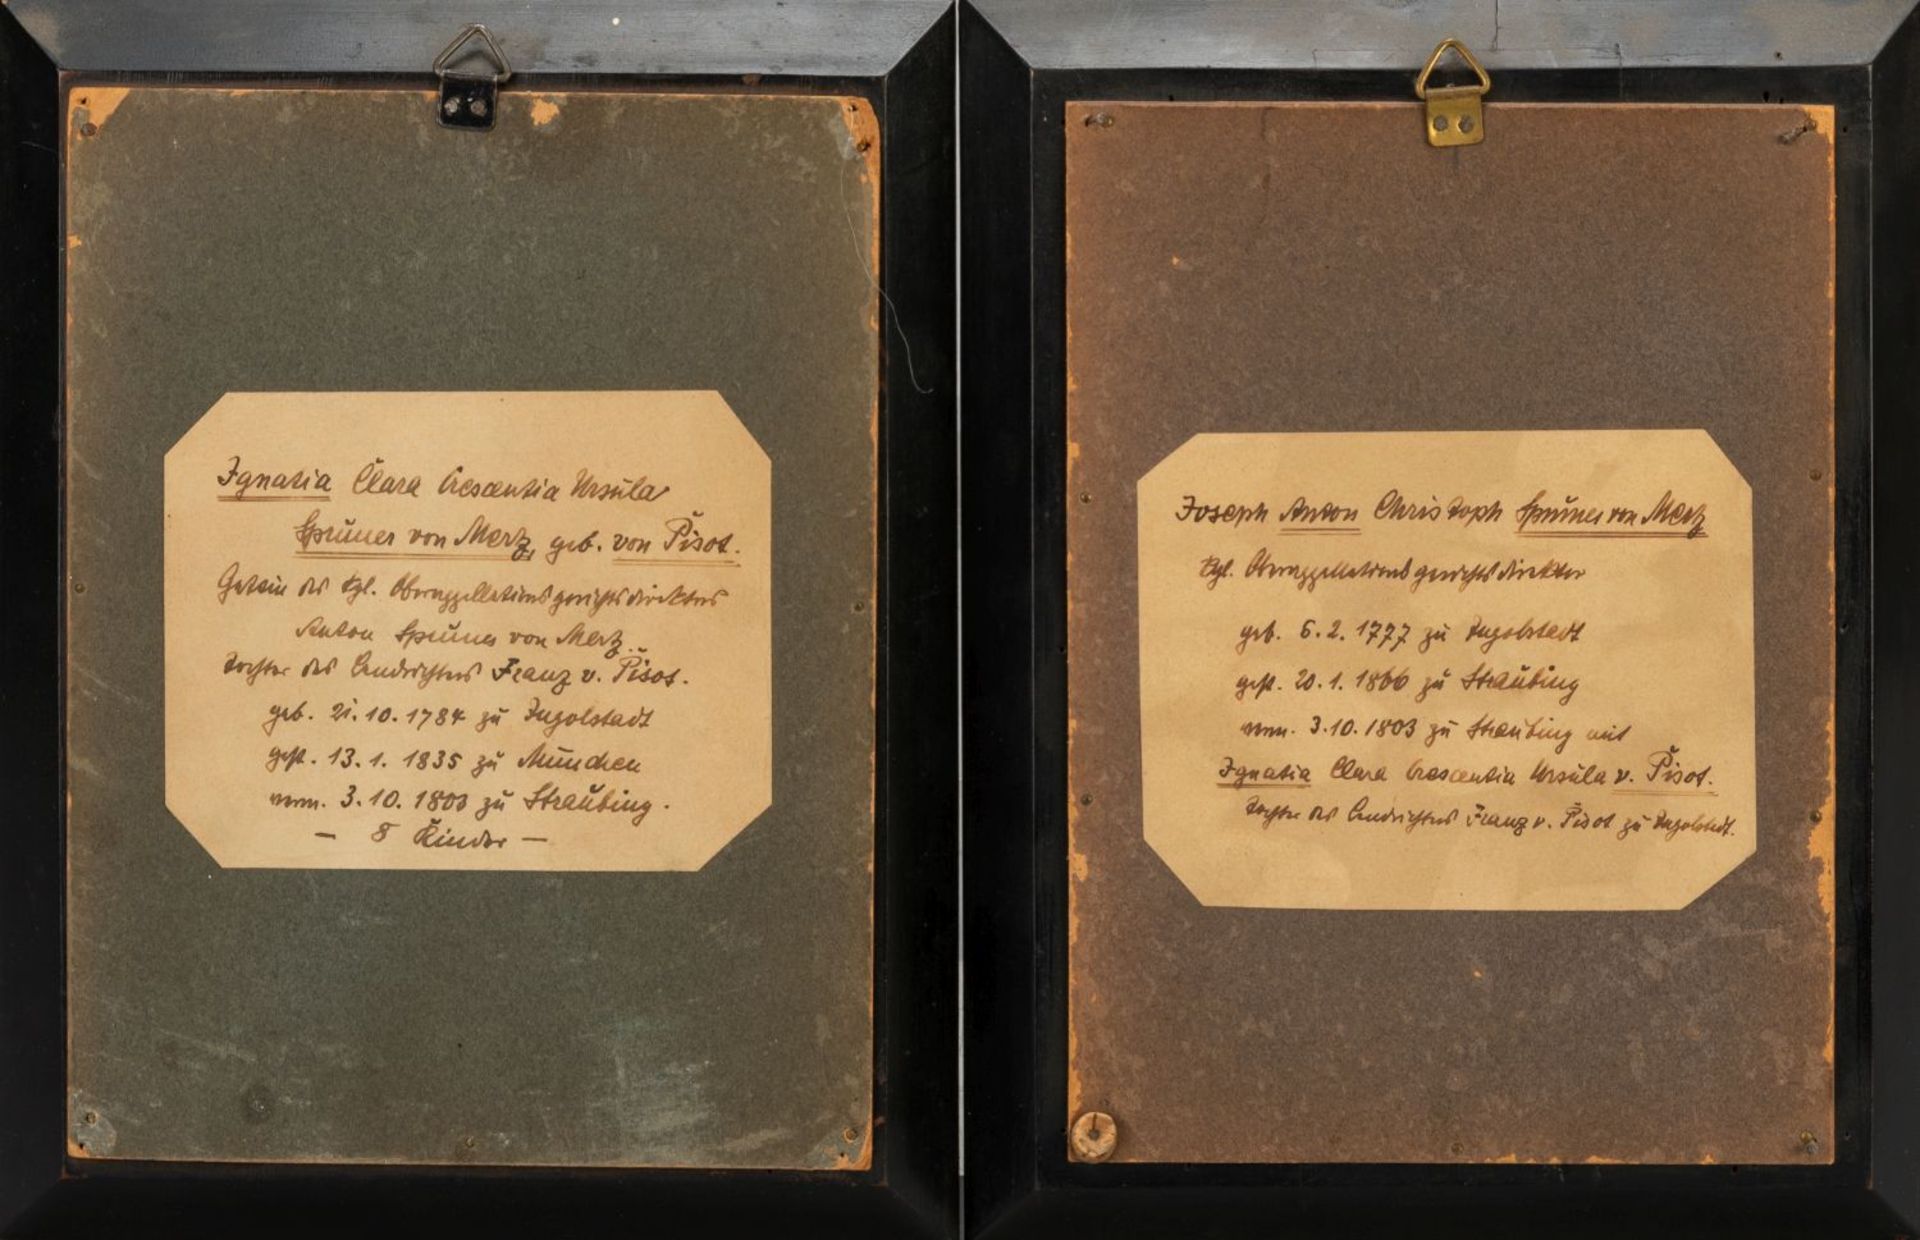 Ignatia Clara Crescentia Ursula
Spruner von Merz, geb. von Pisot.
Gattin des kgl. Oberappellationsgerichtsdirektors
Anton Spruner von Merz.
Tochter des Landrichters Franz v. Pisot.
geb. 21.10.1784 zu Ingolstadt
gest. 13.1.1835 zu München
verm. 3.10.1803 zu Straubing.
— 8 Kinder —
Joseph Anton Christoph Spruner von Merz
kgl. Oberappellationsgerichtsdirektor
geb. 6.2.1777 zu Ingolstadt
gest. 20.1.1866 zu Straubing
verm. 3.10.1803 zu Straubing mit
Ignatia Clara Crescentia Ursula v. Pisot.
Tochter des Landrichters Franz v. Pisot zu Ingolstadt.